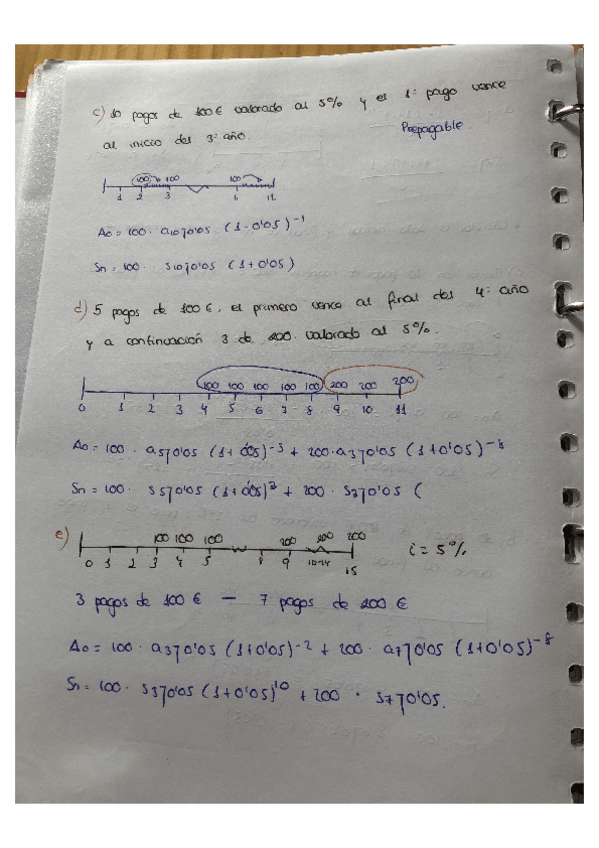 c) 10 pagos de 100€ valorado al 5% y el 1º pago vence
al inicio del 3º año. Prepagable.
100 100 100
1 2 3 12
A0 = 100 · a10⌉0'05 (1-0'05)^-1
Sn = 100 · S10⌉0'05 (1+0'05)
d) 5 pagos de 100€, el primero vence al final del 4º año
y a continuación 3 de 200. valorado al 5%.
100 100 100 100 100 200 200 200
0 1 2 3 4 5 6 7 8 9 10 11
A0 = 100 · a5⌉0'05 (1+0'05)^-3 + 200·a3⌉0'05 (1+0'05)^-8
Sn = 100 · S5⌉0'05 (1+0'05)^3 + 200 · S3⌉0'05 (
e) 100 100 100 200 200 200
0 1 2 3 4 5 8 9 10-14 15 i = 5%
3 pagos de 100€ — 7 pagos de 200€
A0 = 100 · a3⌉0'05 (1+0'05)^-2 + 200 · a7⌉0'05 (1+0'05)^-8
Sn = 100 · S3⌉0'05 (1+0'05)^10 + 200 · S7⌉0'05.